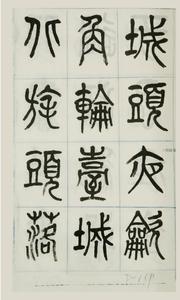 城頭夜龡
角輪臺城
北旄頭落